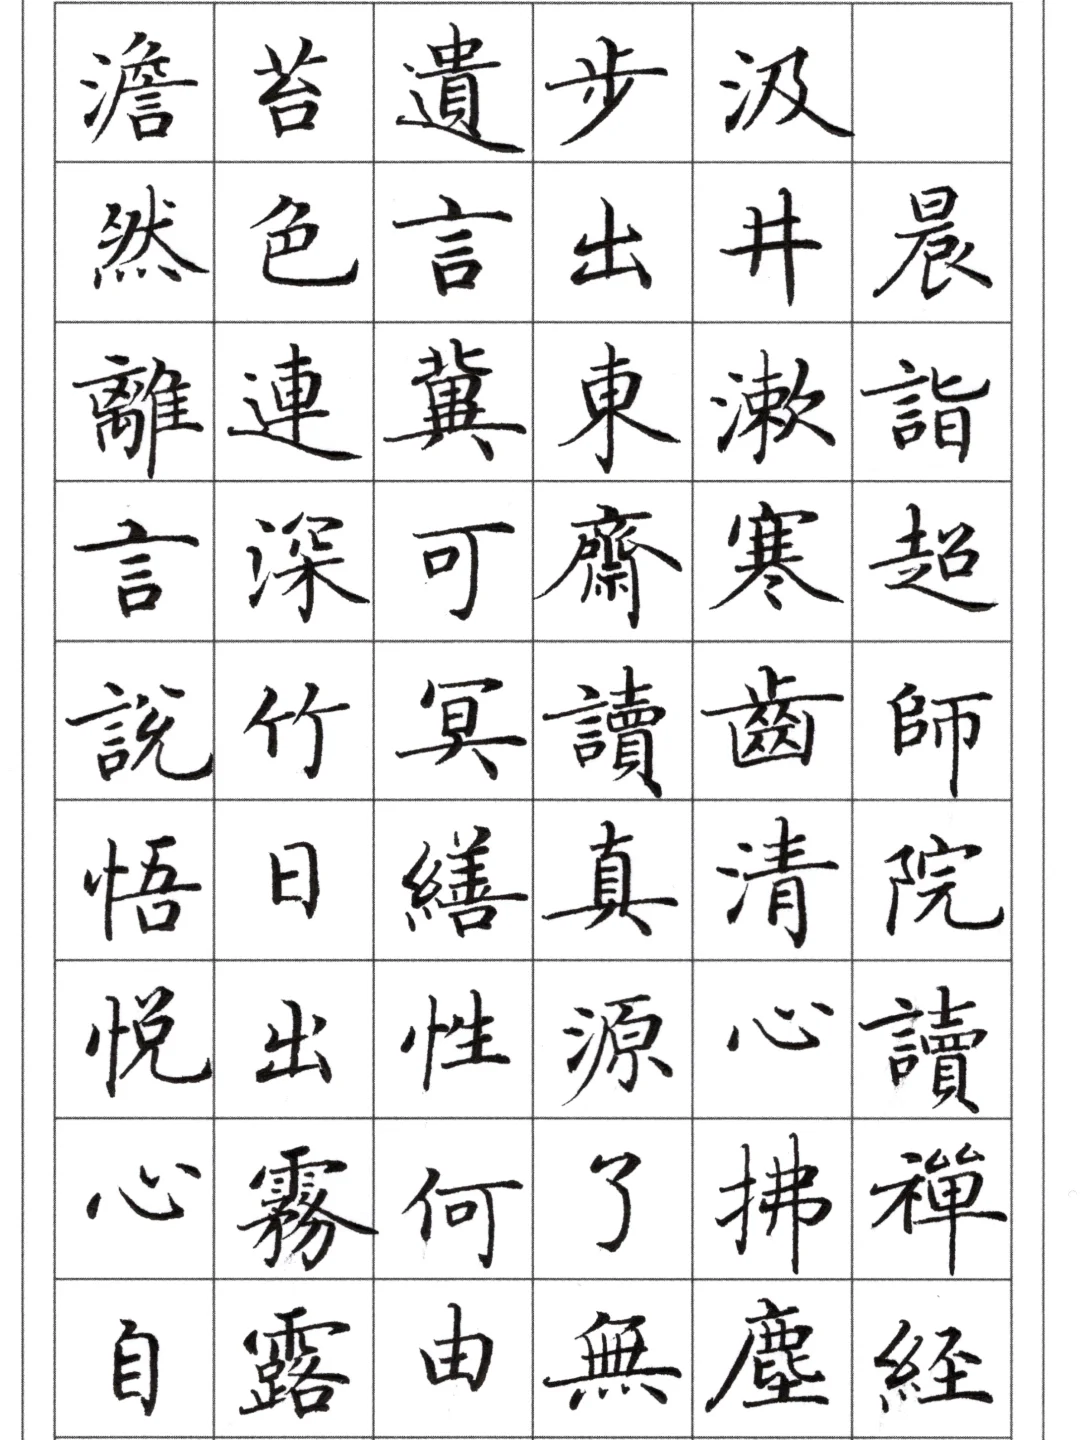 晨詣超師院讀禪經
汲井漱寒齒清心拂塵
步出東齋讀真源了無
遺言冀可冥繕性何由
苔色連深竹日出霧露
澹然離言說悟悅心自